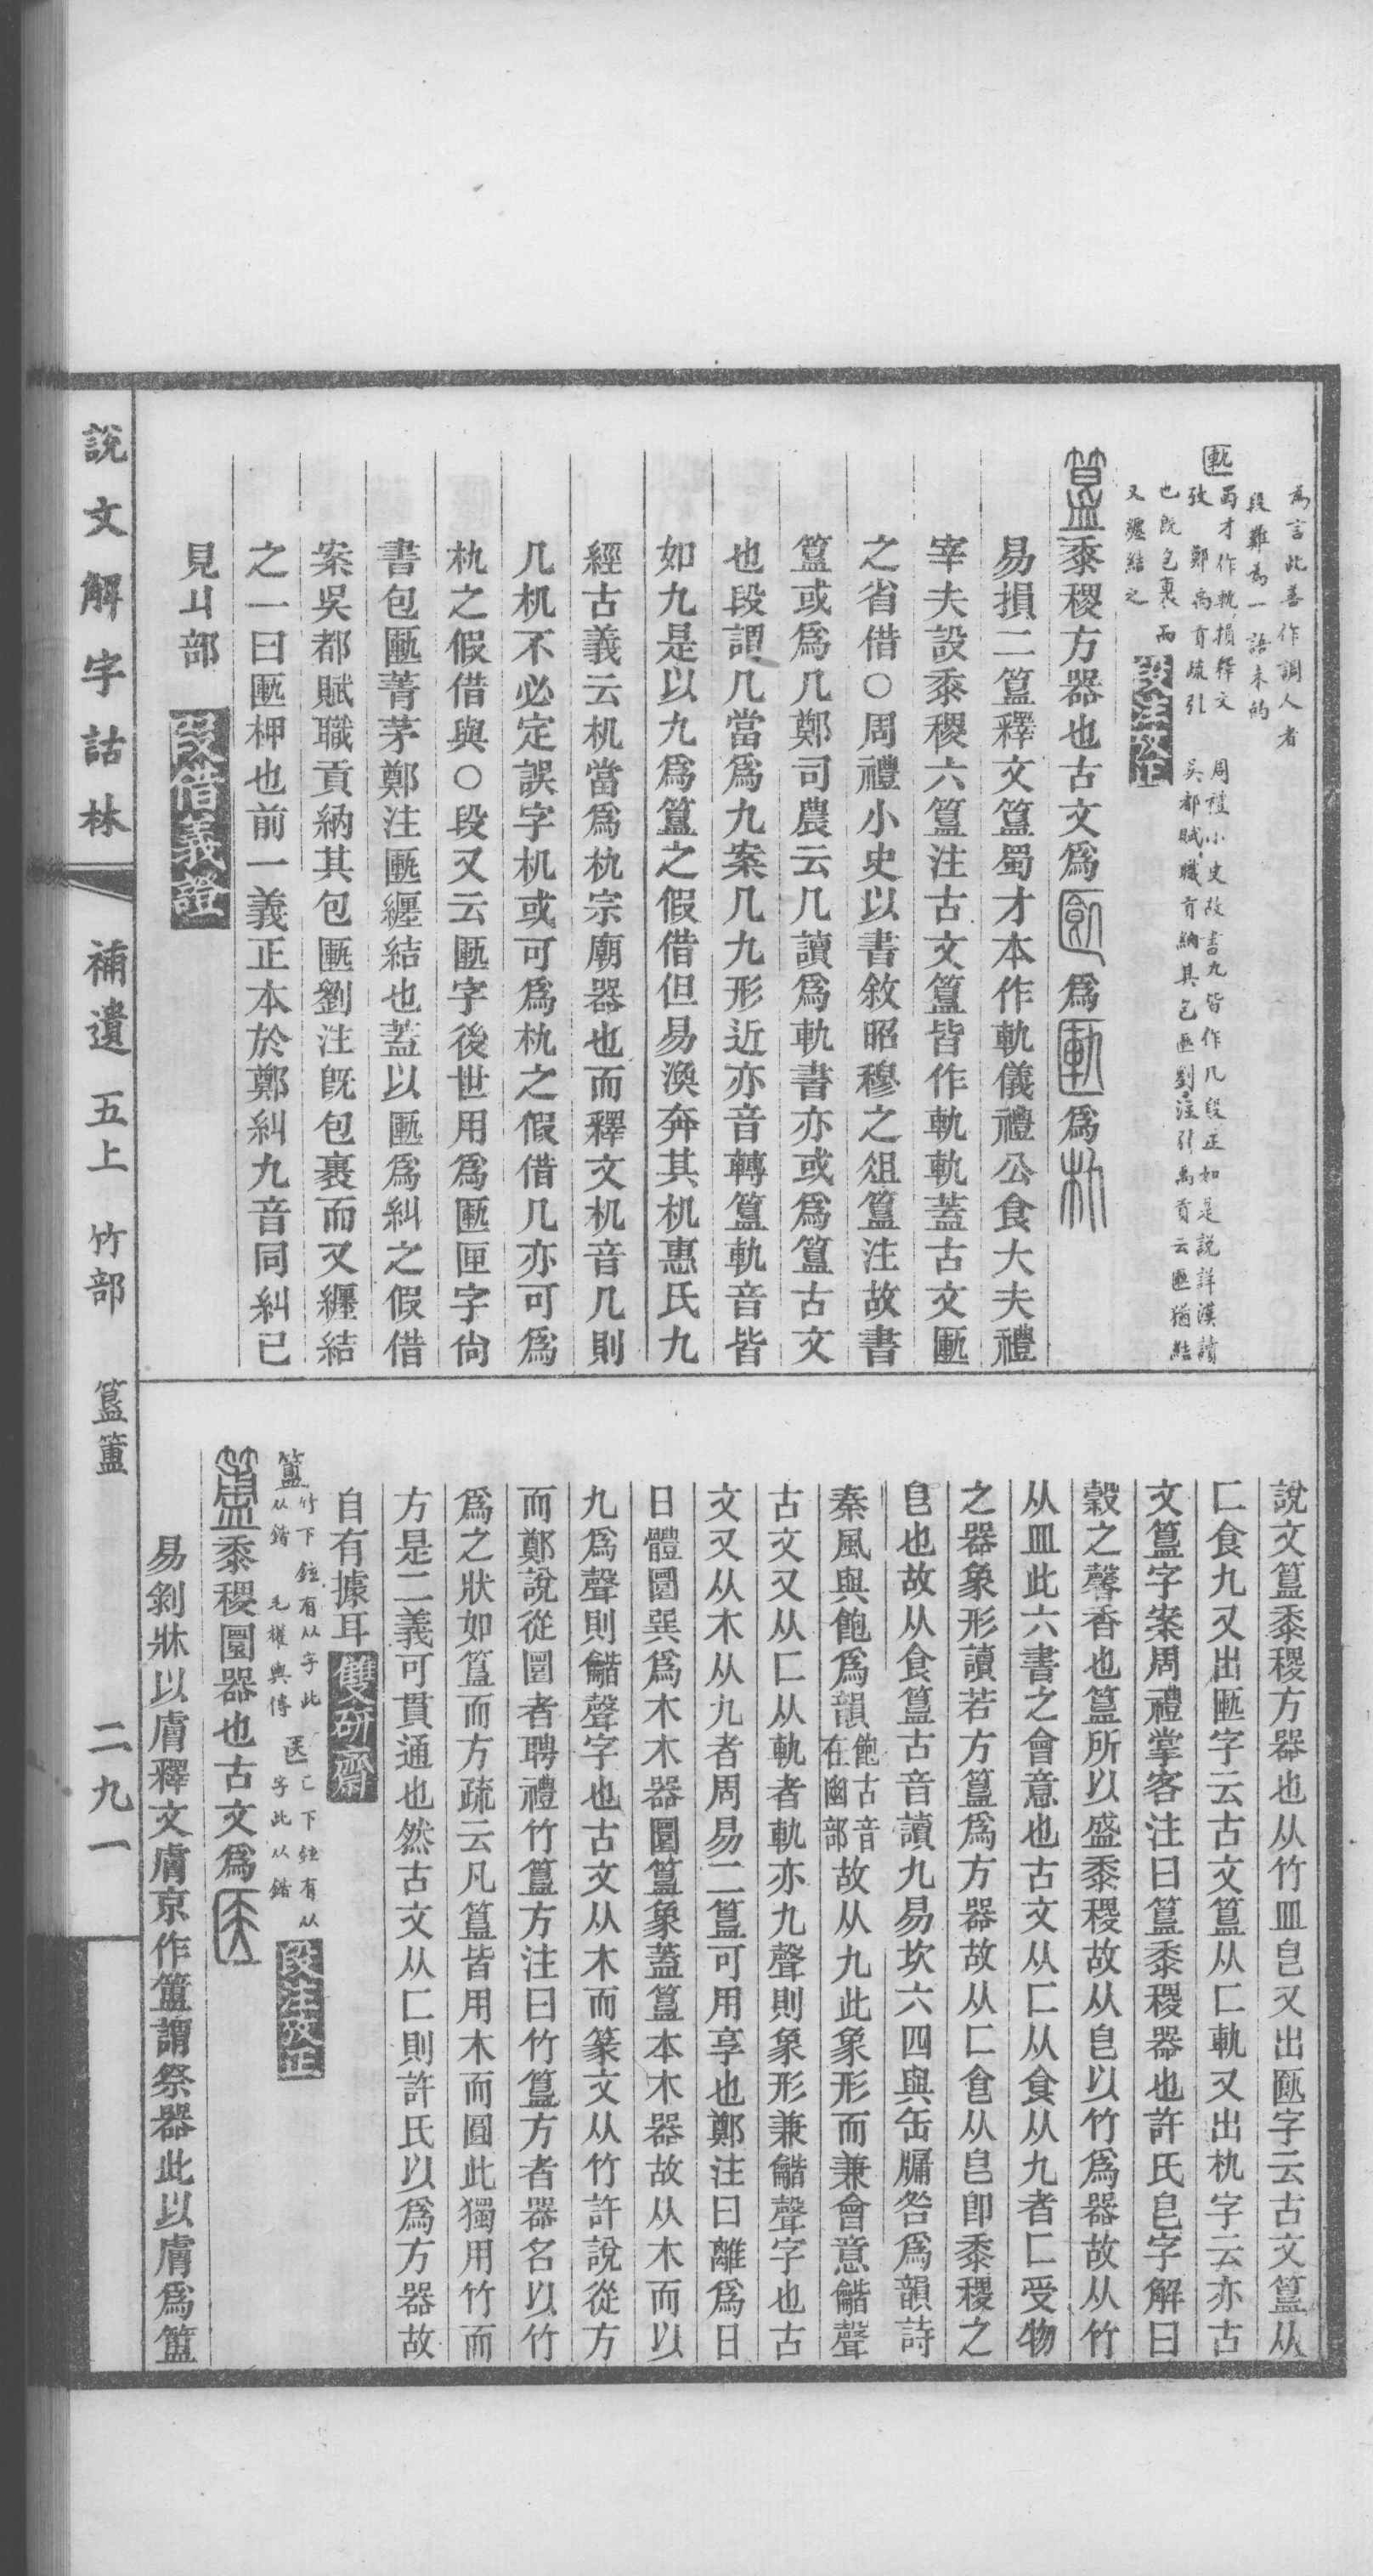 為言此善作調人者
段難為一語未的
匭
蜀才作軌損釋文
攷鄭禹貢疏引
周禮小史故書九皆作几段正如是說詳漢讀
吳都賦職貢納其包匭劉注引禹貢云匭猶結
也既包裹而
又纏結之
段注攷正
簋黍稷方器也古文爲𠥗爲匭爲朹
易損二簋釋文簋蜀才本作軌儀禮公食大夫禮
宰夫設黍稷六簋注古文簋皆作軌軌蓋古文匭
之省借○周禮小史以書敘昭穆之俎簋注故書
簋或爲几鄭司農云几讀爲軌書亦或爲簋古文
也段謂几當爲九案几九形近亦音轉簋軌音皆
如九是以九爲簋之假借但易渙奔其机惠氏九
經古義云机當爲朹宗廟器也而釋文机音几則
几机不必定誤字机或可爲朹之假借几亦可爲
朹之假借與○段又云匭字後世用爲匭匣字尙
書包匭菁茅鄭注匭纒結也蓋以匭爲糾之假借
案吳都賦職貢納其包匭劉注旣包裹而又纒結
之一曰匭柙也前一義正本於鄭糾九音同糾已
見丩部
段借義證
說文簋黍稷方器也从竹皿皀又出𠥗字云古文簋从
匚食九又出匭字云古文簋从匚軌又出朹字云亦古
文簋字案周禮掌客注曰簋黍稷器也許氏皀字解曰
穀之馨香也簋所以盛黍稷故从皀以竹爲器故从竹
从皿此六書之會意也古文从匚从食从九者匚受物
之器象形讀若方簋爲方器故从匚食从皀卽黍稷之
皀也故从食簋古音讀九易坎六四與缶牖咎爲韻詩
秦風與飽爲韻飽古音在幽部故从九此象形而兼會意龤聲
古文又从匚从軌者軌亦九聲則象形兼龤聲字也古
文又从木从九者周易二簋可用享也鄭注曰離爲日
日體圜巽爲木木器圜簋象蓋簋本木器故从木而以
九爲聲則龤聲字也古文从木而篆文从竹許說從方
而鄭說從圜者聘禮竹簋方注曰竹簋方者器名以竹
爲之狀如簋而方疏云凡簋皆用木而圓此獨用竹而
方是二義可貫通也然古文从匚則許氏以爲方器故
自有據耳
雙硏齋
簠
竹下鉉有从字此
从鍇 毛權輿傳
匚下鉉有从
字此从鍇
段注攷正
簠黍稷圜器也古文爲医
易剝牀以膚釋文膚京作簠謂祭器此以膚爲簠
說文解字詁林
補遺 五上 竹部 簋簠
二九一